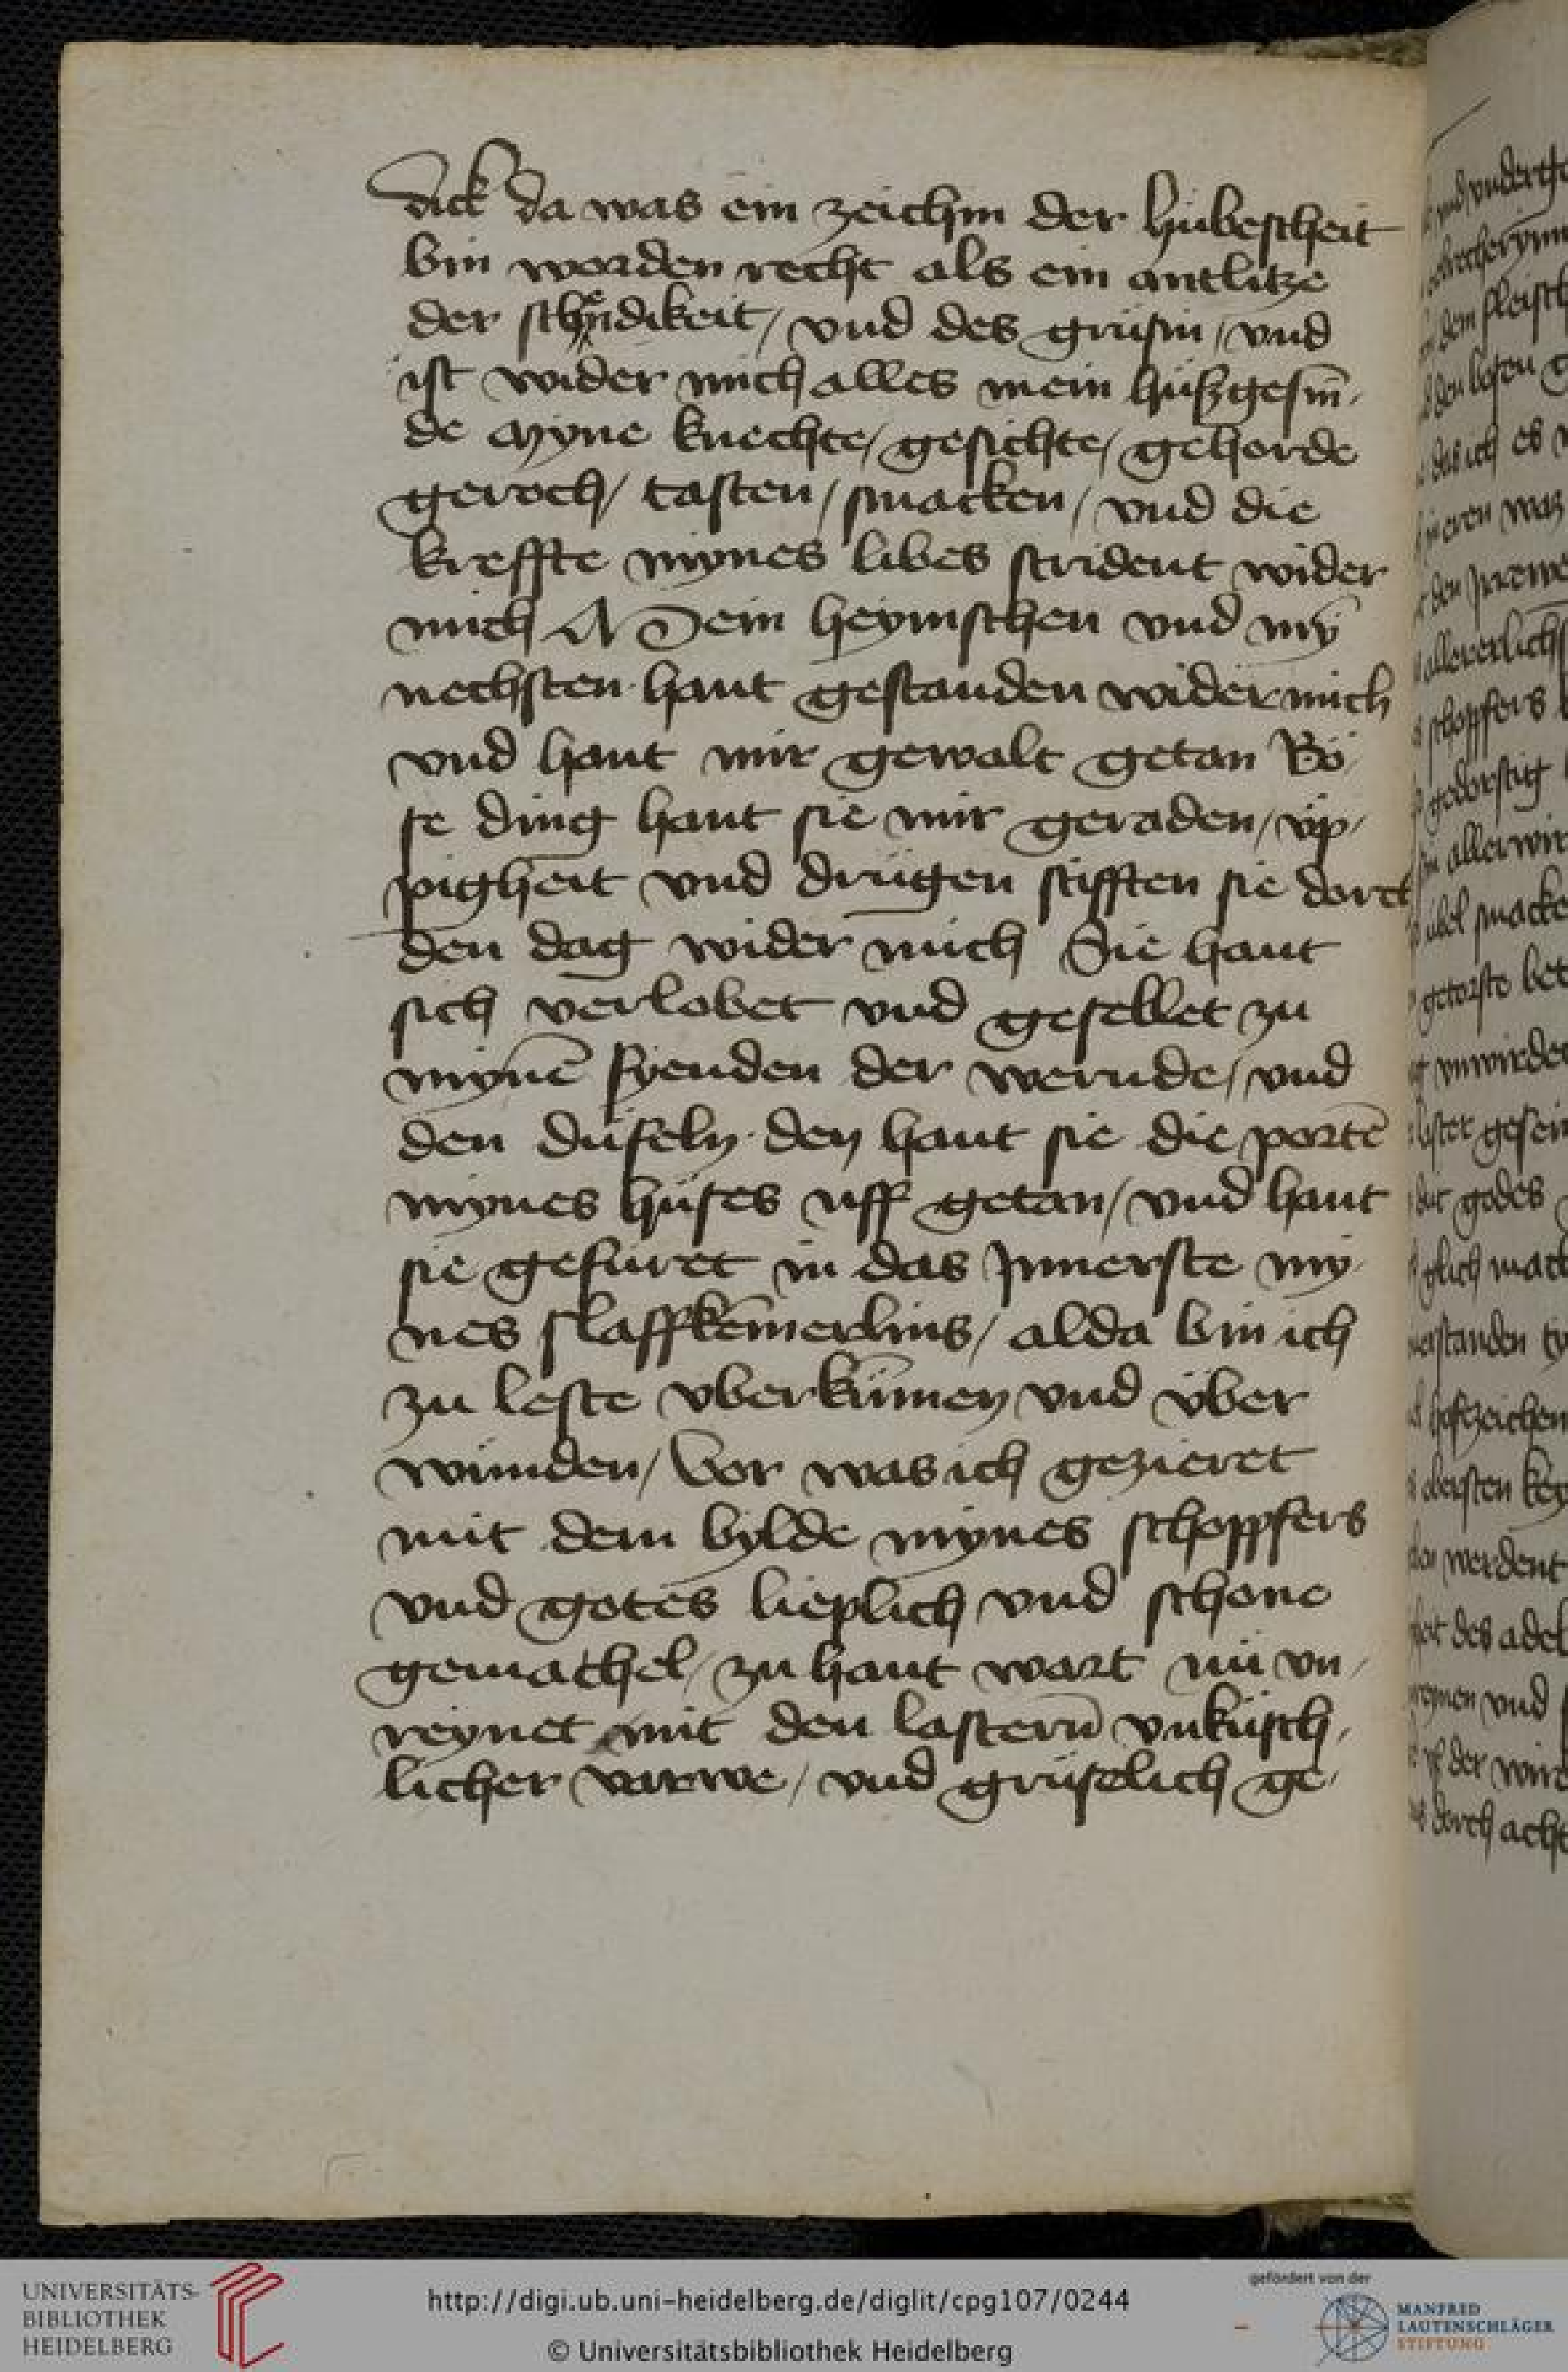 dick da was ein zeichin der hübescheit
bin worden recht als ein antlitze
der schendikeit / vnd des grüsin / vnd
ist wider mich alles mein hüßgesin̄
de Myne knechte / gesichte / gehorde
geroch / tasten / smacken / vnd die
kreffte mynes libes strident wider
mich Mein heymschen vnd mȳ
nechsten hant gestanden wider mich
vnd hant mir gewalt getan Bö
se ding hant sie mir geraden / üp
pigheit vnd drügen stifften sie dorch
den dag wider mich Sie hant
sich verlobet vnd gesellet zu
mynē fyenden der wernde / vnd
den düfeln den hant sie die portē
mynes hüses uff getan / vnd hant
sie gefüret in das Jnnerste my
nes slaffkēmerlins / alda bin ich
zu leste vberkūmen vnd über
wunden / Vor was ich gezieret
mit dem bylde mynes schoppfers
vnd gotes lieplich vnd schone
gemachel / zu hant wart nü vn
reynet mit den lastern vnküsch
licher varwe / vnd grüselich ge
UNIVERSITÄTS-
BIBLIOTHEK
HEIDELBERG
http://digi.ub.uni-heidelberg.de/diglit/cpg107/0244
© Universitätsbibliothek Heidelberg
gefördert von der
MANFRED
LAUTENSCHLÄGER
STIFTUNG